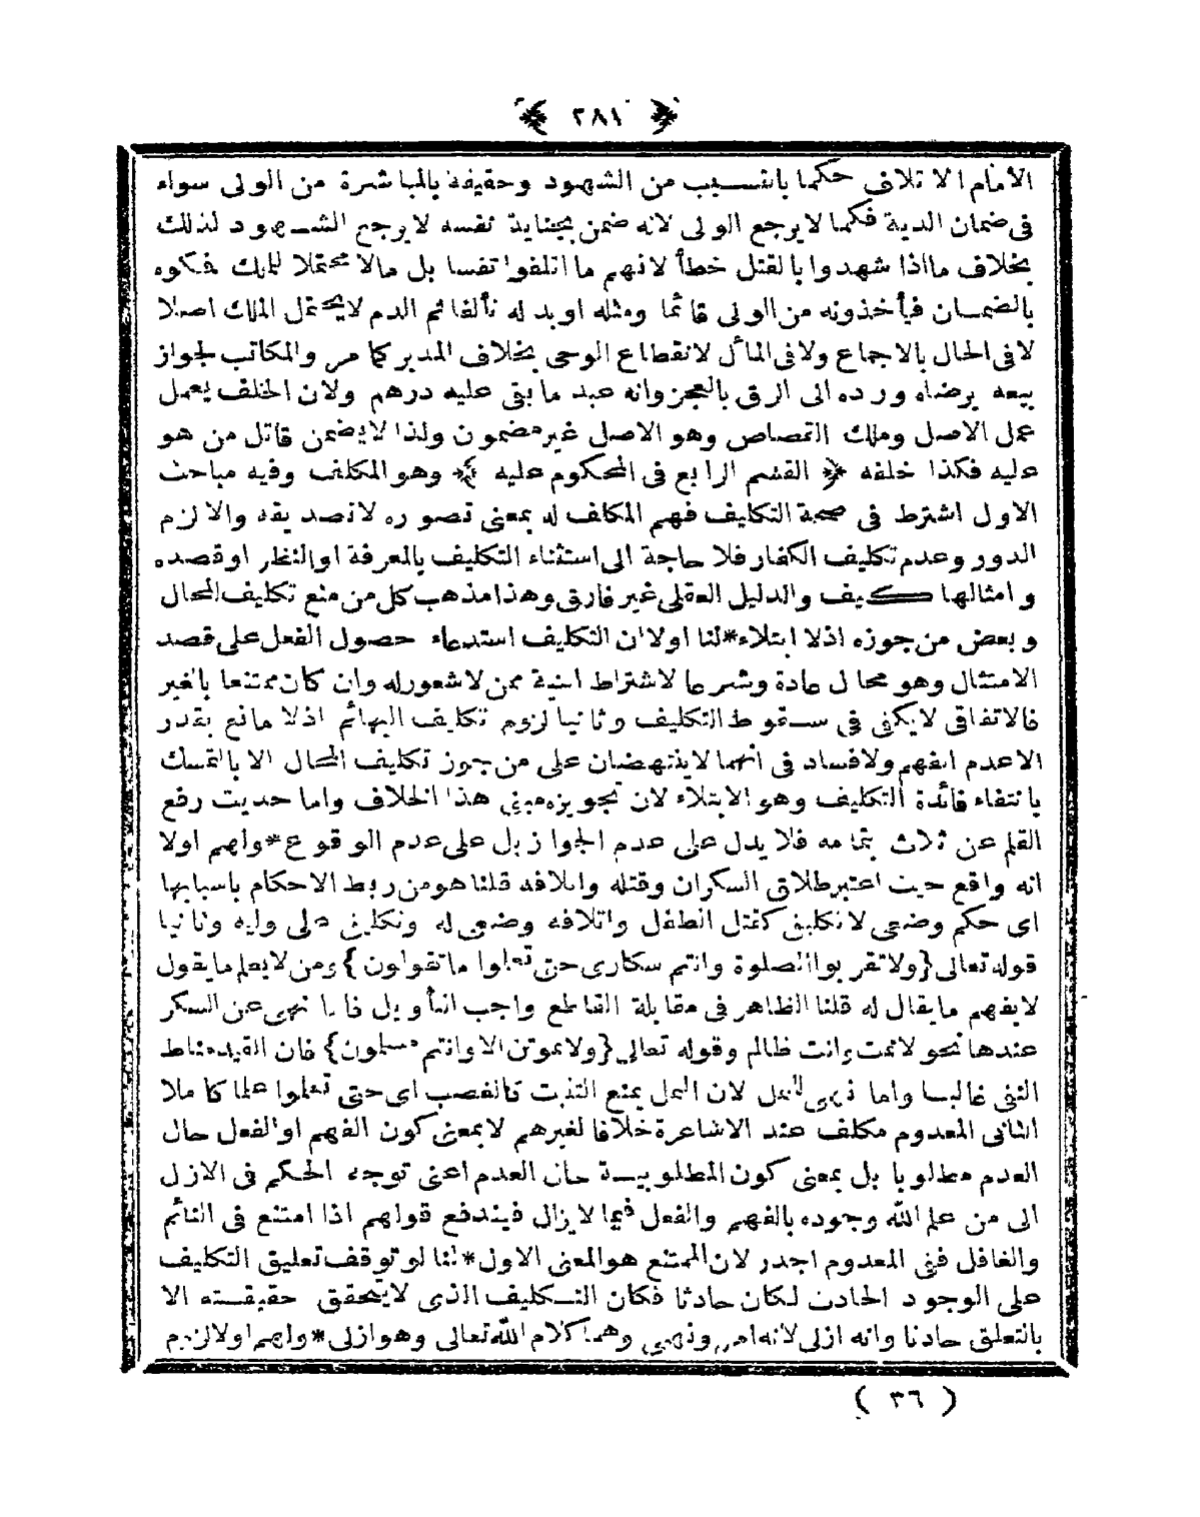 ﴿ ٢٨١ ﴾
الامام الاتلاف حكما بالتسبيب من الشهود وحقيقة بالمباشرة من الولى سواء
فى ضمان الدية فكما لا يرجع الولى لانه ضمن بجناية نفسه لا يرجع الشهود لذلك
بخلاف ما اذا شهدوا بالقتل خطأ لانهم ما اتلفوا نفسا بل مالا محتملا للملك فلكوه
بالضمان فيأخذونه من الولى قائما ومثله او بدله تألفا ثم الدم لا يحتمل الملك اصلا
لا فى الحال بالاجماع ولا فى المأل لانقطاع الوحى بخلاف المدبر كما مر والمكاتب لجواز
بيعه برضاه ورده الى الرق بالعجز وانه عبد ما بقى عليه درهم ولان الخلف يعمل
عمل الاصل وملك القصاص وهو الاصل غير مضمون ولذا لا يضمن قاتل من هو
عليه فكذا خلفه ﴿ القسم الرابع فى المحكوم عليه ﴾ وهو المكلف وفيه مباحث
الاول اشترط فى صحة التكليف فهم المكلف له بمعنى تصوره لا تصديقه والا لزم
الدور وعدم تكليف الكفار فلا حاجة الى استثناء التكليف بالمعرفة او النظر او قصده
وامثالها كيف والدليل العقلى غير فارق وهذا مذهب كل من منع تكليف المحال
وبعض من جوزه اذ لا ابتلاء * لنا اولا ان التكليف استدعاء حصول الفعل على قصد
الامتثال وهو محال عادة وشرعا لاشتراط النية ممن لا شعور له وان كان ممتنعا بالغير
فالاتفاقى لا يكفى فى سقوط التكليف وثانيا لزوم تكليف البهائم اذ لا مانع يقدر
الا عدم الفهم ولا فساد فى انهما لا ينتهضان على من جوز تكليف المحال الا بالتمسك
بانتفاء فائدة التكليف وهو الابتلاء لان تجويزه مبنى هذا الخلاف واما حديث رفع
القلم عن ثلاث بتمامه فلا يدل على عدم الجواز بل على عدم الوقوع * ولهم اولا
انه واقع حيث اعتبر طلاق السكران وقتله واتلافه قلنا هو من ربط الاحكام باسبابها
اى حكم وضعى لا تكليفى كقتل الطفل واتلافه وضعى له وتكليفى على وليه وثانيا
قوله تعالى {ولا تقربوا الصلوة وانتم سكارى حتى تعلوا ما تقولون} ومن لا يعلم ما يقول
لا يفهم ما يقال له قلنا الظاهر فى مقابلة القاطع واجب التأويل فاما نهى عن السكر
عندها نحو لا تمت وانت ظالم وقوله تعالى {ولا تموتن الا وانتم مسلمون} فان القيد مناط
النفى غالبا واما نهى الثمل لان الثمل يمنع التثبت كالغضب اى حتى تعلوا علما كاملا
الثانى المعدوم مكلف عند الاشاعرة خلافا لغيرهم لا بمعنى كون الفهم او الفعل حال
العدم مطلوبا بل بمعنى كون المطلوبية حال العدم اعنى توجه الحكم فى الازل
الى من علم الله وجوده بالفهم والفعل فيما لا يزال فيندفع قولهم اذا امتنع فى النائم
والغافل ففى المعدوم اجدر لان الممتنع هو المعنى الاول * لنا لو توقف تعليق التكليف
على الوجود الحادث لكان حادثا فكان التكليف الذى لا يتحقق حقيقته الا
بالتعلق حادثا وانه ازلى لانه امر ونهى وهما كلام الله تعالى وهو ازلى * ولهم اولا لزم
( ٣٦ )